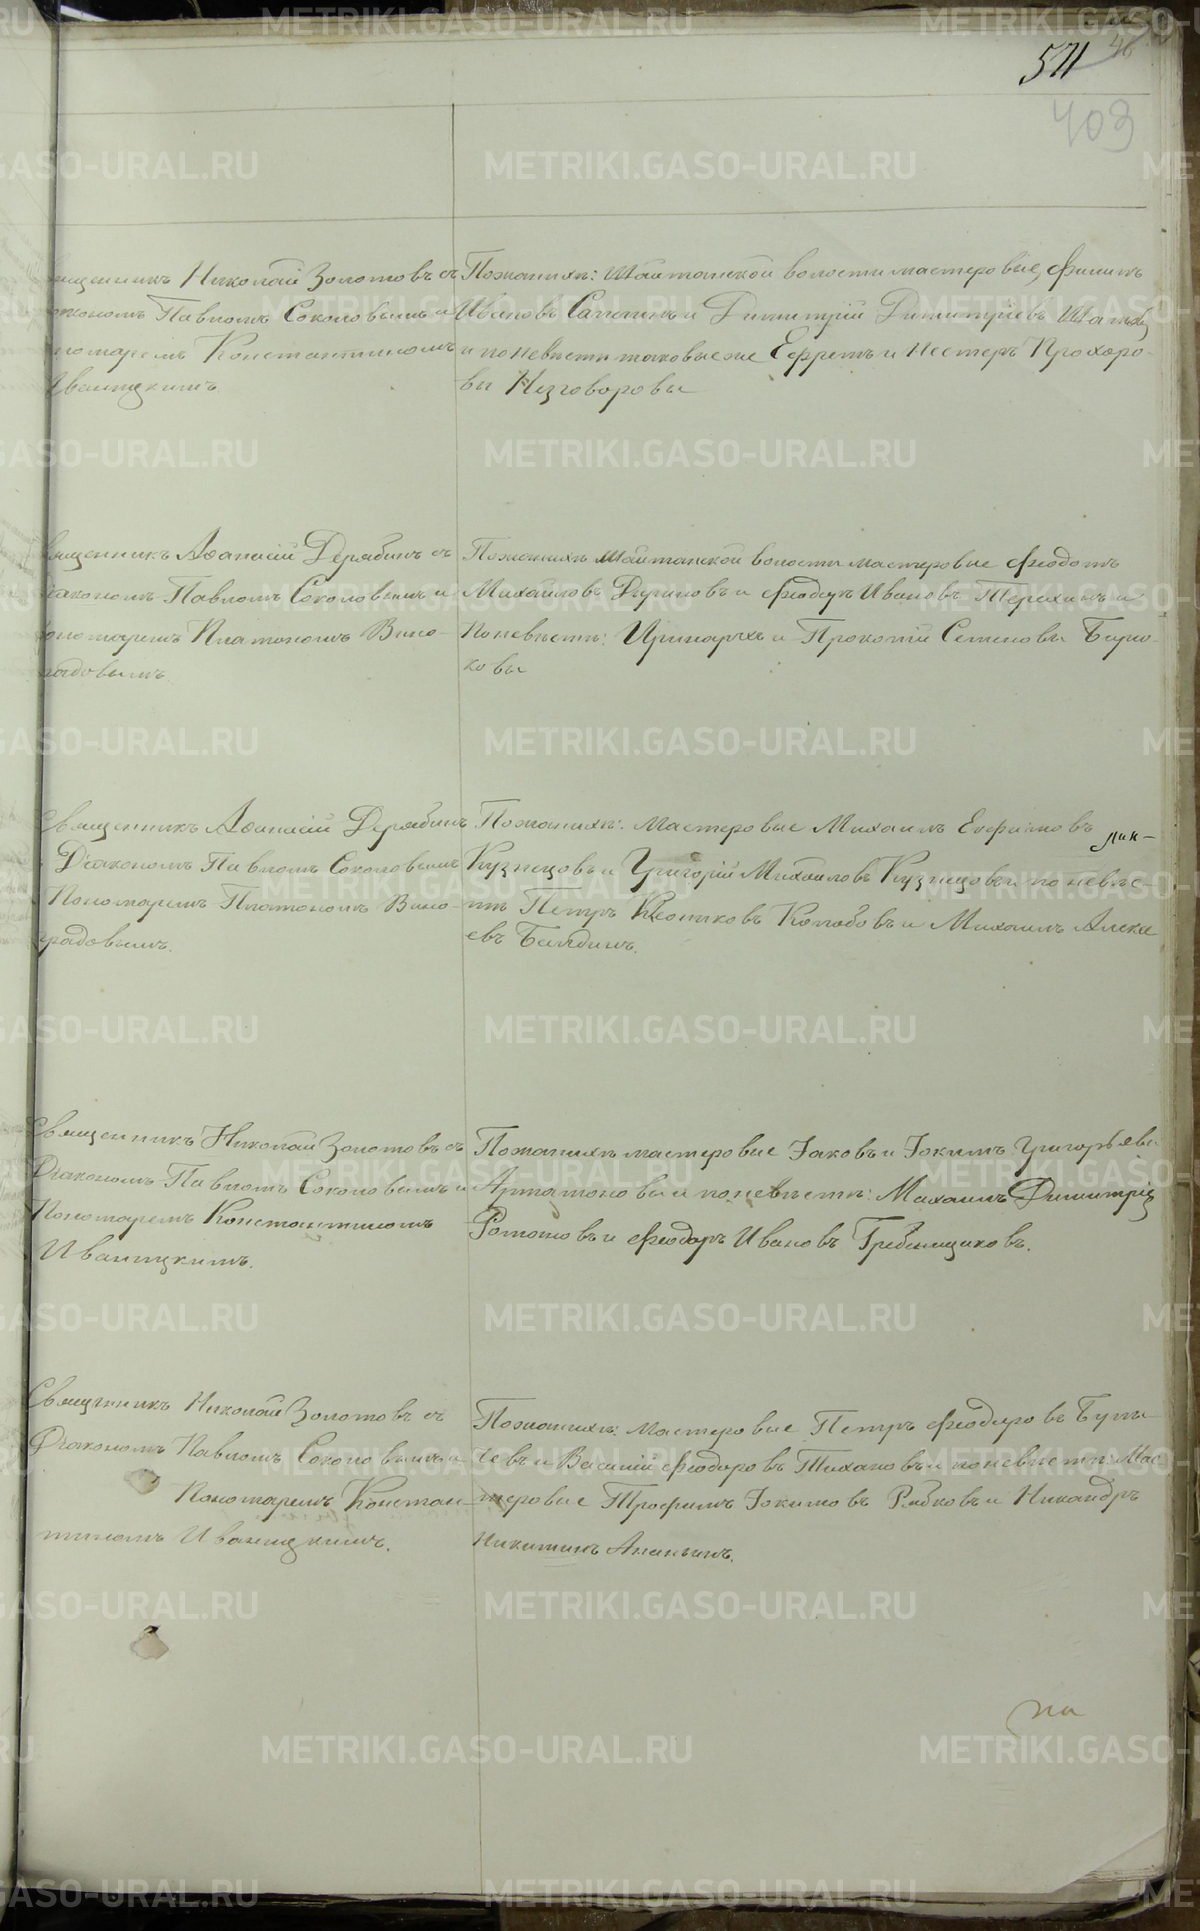 571
46
403
Священникъ Николай Золотовъ съ
Діакономъ Павломъ Соколовымъ и
пономаремъ Константиномъ
Иваницкимъ.
Поженихѣ: Шайтанской волости мастеровые, Филипъ
Ивановъ Сапегинъ и Димитрій Димитріевъ
и по невѣсти таковые же Ефремъ и Нестеръ Прохоро-
вы Незговоровы
Священникъ Аѳанасій Дерябинъ съ
Діакономъ Павломъ Соколовымъ и
пономаремъ Платономъ Вино-
градовымъ.
Поженихѣ Шайтанской волости мастеровые Ѳеодотъ
Михайловъ и Ѳеодулъ Ивановъ Терехинъ и
Поневѣсти: Иринархъ и Прокопій Семеновы Бирю-
ковы
Священникъ Аѳанасій Дерябинъ
Діакономъ Павломъ Соколовымъ
Пономаремъ Платономъ Вино-
градовымъ.
Поженихѣ: мастеровые Михаилъ Ефимовъ
Кузнецовъ и Григорій Михаиловъ Кузнецовъ и по невѣс-
тѣ Петръ Колобовъ и Михаилъ Алексе
евъ Балдинъ.
Священникъ Николай Золотовъ съ
Діакономъ Павломъ Соколовымъ и
Пономаремъ Константиномъ
Иваницкимъ.
Поженихѣ мастеровые Іаковъ и Іокимъ Григорьевы
Артамоновы и поневѣсти: Михаилъ Димитріев
и Ѳеодоръ Ивановъ Гребенщиковъ.
Священникъ Николай Золотовъ съ
Діакономъ Павломъ Соколовымъ и
Пономаремъ Констан-
тиномъ Иваницкимъ.
Поженихѣ: мастеровые Петръ Ѳеодоровъ Булы-
чевъ и Василій Ѳеодоровъ Тихановъ и поневѣсти: мас-
теровые Трофимъ Іокимовъ Рябковъ и Никандръ
Никитинъ Ананьинъ.
на
METRIKI.GASO-URAL.RU